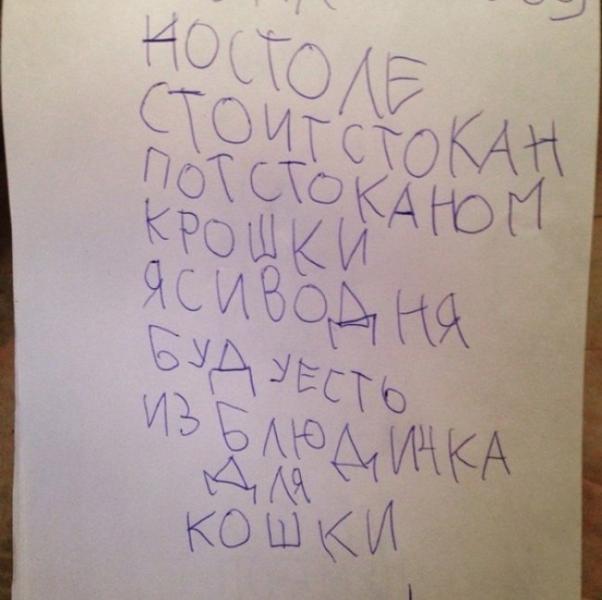 НОСТОЛЕ
СТОИТ СТОКАН
ПОТ СТОКАНОМ
КРОШКИ
Я СИВОДНЯ
БУДУ ЕСТЬ
ИЗ БЛЮДИЧКА
ДЛЯ
КОШКИ